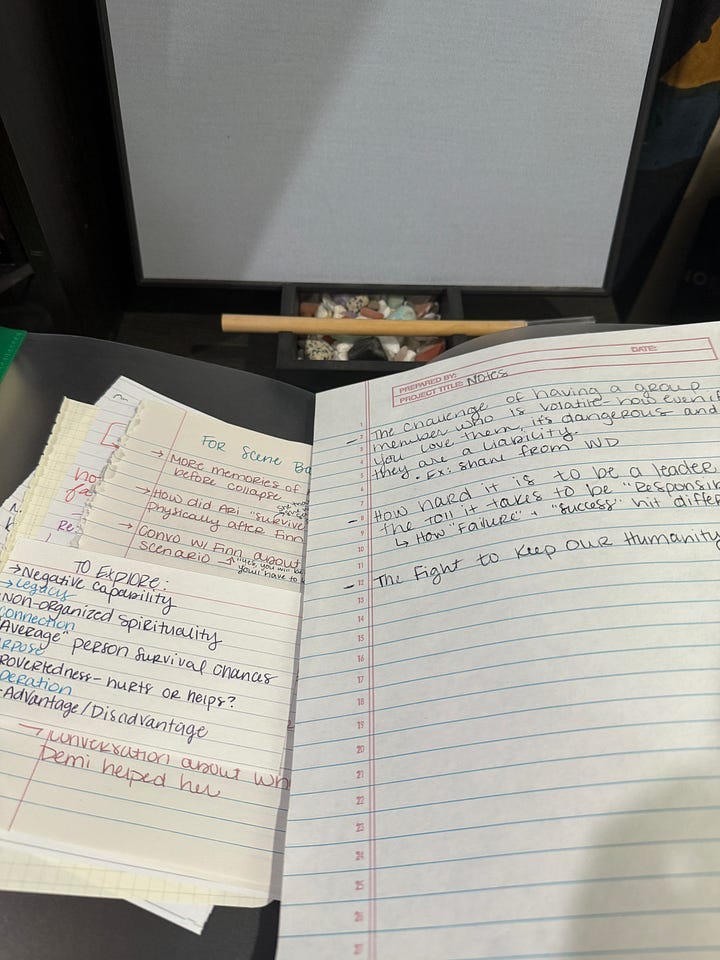 PREPARED BY:
DATE:
PROJECT TITLE: NOTES
- The challenge of having a group
member who is volatile - how even if
you love them, it's dangerous and
they are a liability.
• Ex: Shane from WD
- How hard it is to be a leader.
The toll it takes to be "Responsib
↳ How "Failure" + "success" hit differe
- The Fight to Keep Our Humanity
1
2
3
4
5
6
7
8
9
10
11
12
13
14
15
16
17
18
19
20
21
22
23
24
25
26
27
FOR Scene Ba
→ More memories of
before collapse
→ How did Ari "survive
physically after Finn
→ Convo w/ Finn about
scenario → "yes, you will
you'll have to
TO EXPLORE:
→ Negative capability
→ Legacy
Non-organized spirituality
connection
Average" person survival chances
rpose
rovertedness - hurts or helps?
peration
-Advantage/Disadvantage
→ conversation about wh
Demi helped her